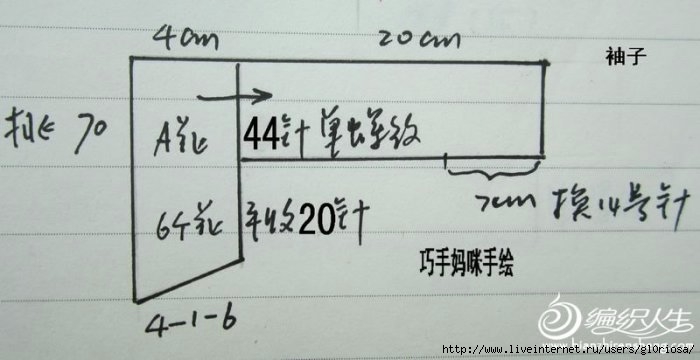 4cm 20cm 袖子
挑 70
A花 44针单螺纹
6个花 平收20针
7cm 换14号针
巧手妈咪手绘
4-1-6
编织人生
http://www.liveinternet.ru/users/gloriosa/